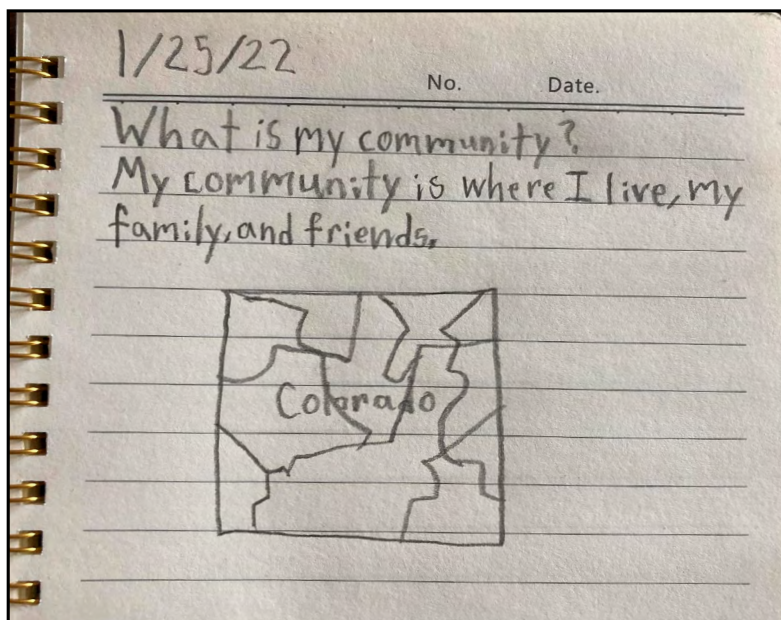 1/25/22
No. Date.
What is my community?
My community is where I live, my
family, and friends.
Colorado